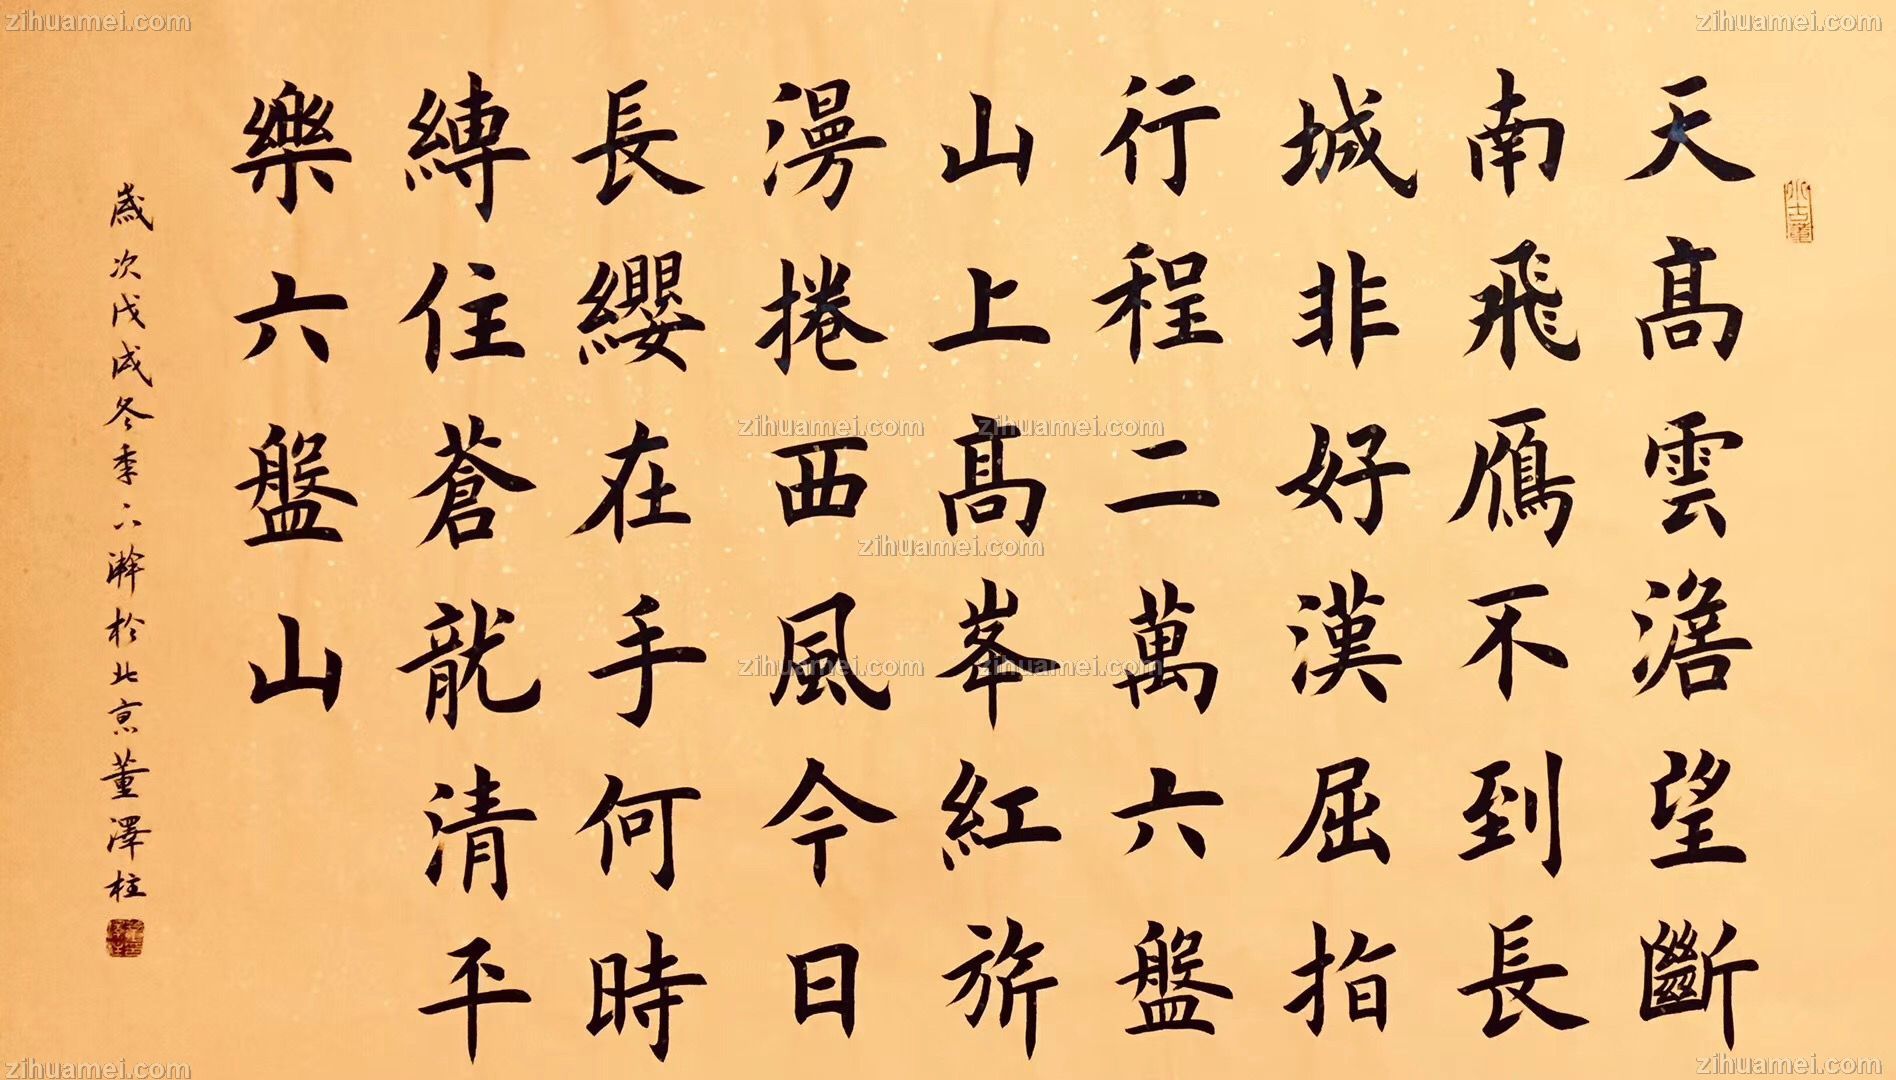 天髙雲澹望斷
南飛鴈不到長
城非好漢屈指
行程二萬六盤
山上髙峯紅旂
漫捲西風今日
長纓在手何時
縛住蒼龍清平
樂六盤山
歲次戊戌冬季下澣於北京董澤柱
zihuamei.com
zihuamei.com
zihuamei.com
zihuamei.com
zihuamei.com
zihuamei.com
zihuamei.com
zihuamei.com
zihuamei.com